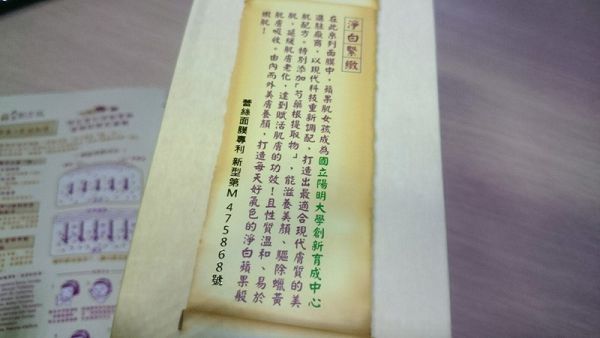 淨白緊緻
在此系列面膜中，蘋果肌女孩成為國立陽明大學創新育成中心
進駐廠商，以現代科技重新調配，打造出最適合現代膚質的美
肌配方。特別添加「芍藥根提取物」，能滋養美顏、驅除蠟黃
肌、延緩肌膚老化，達到賦活肌膚的功效！且性質溫和、易於
肌膚吸收。由內而外美膚養顏，打造每天好氣色的淨白蘋果般
嫩肌！
蠶絲面膜專利 新型第M475868號